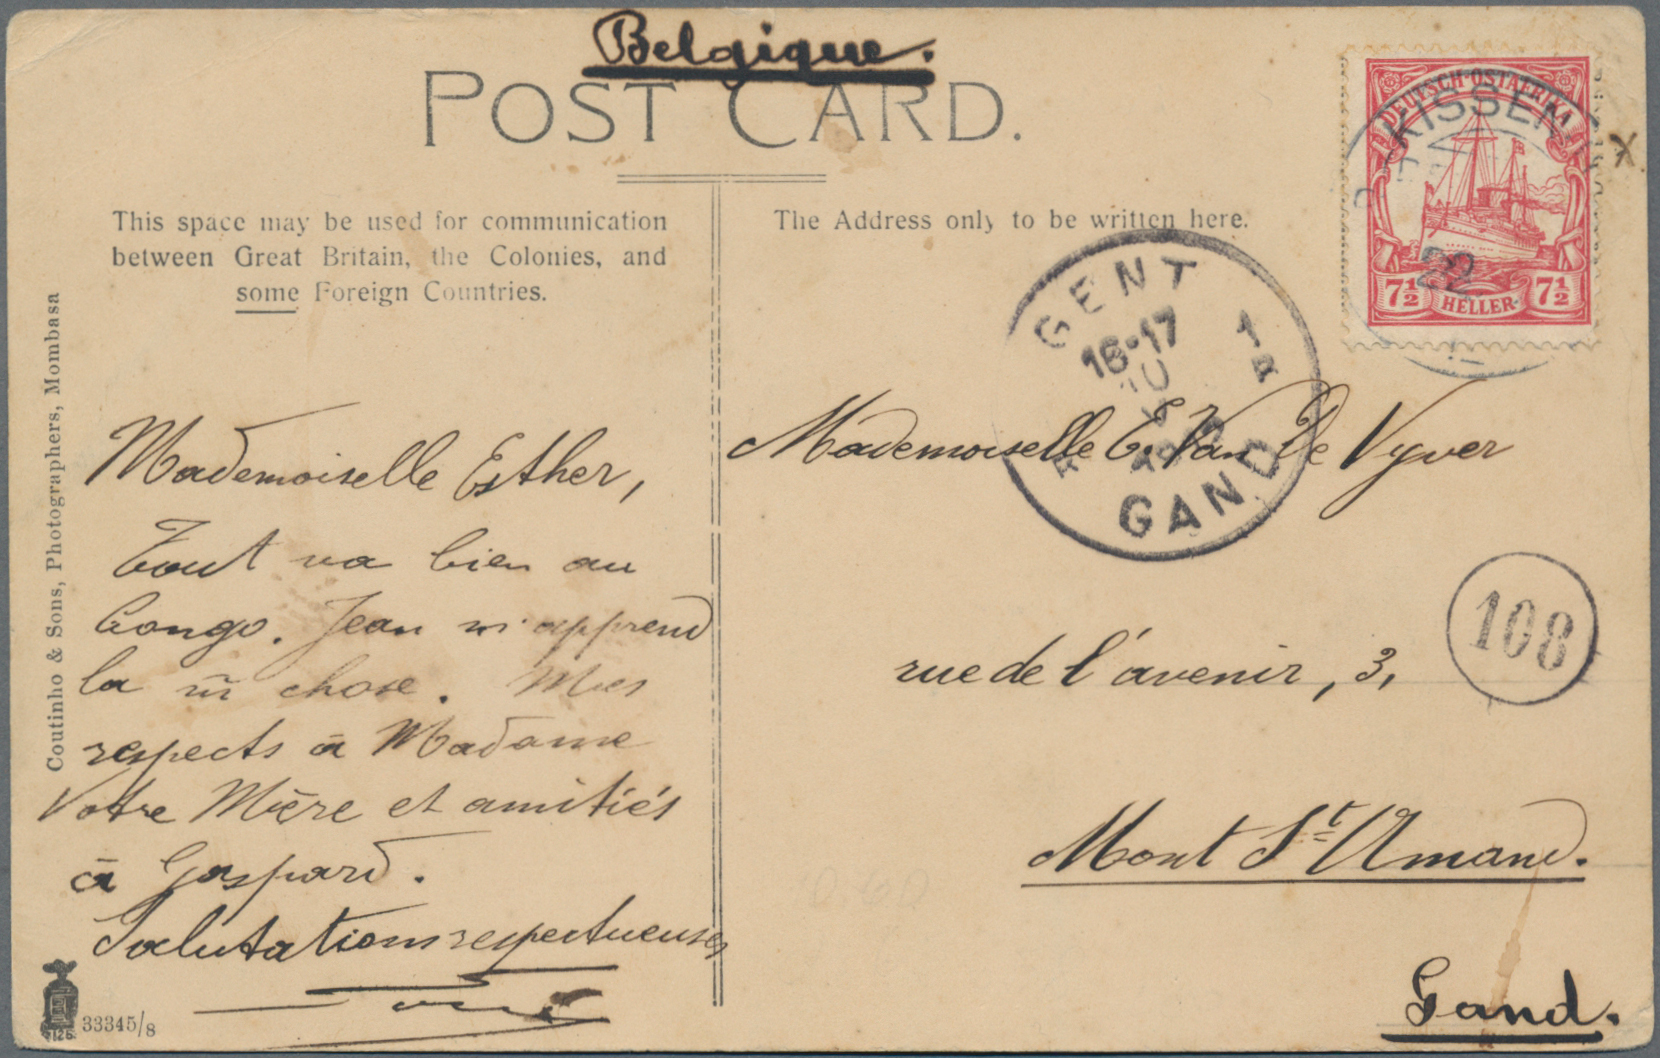 Belgique.
POST CARD.
This space may be used for communication
between Great Britain, the Colonies, and
some Foreign Countries.
The Address only to be written here.
DEUTSCH-OSTAFRIKA
KISSENJI
22
7½ HELLER 7½
GENT
16-17
10
1
GAND
Coutinho & Sons, Photographers, Mombasa
Mademoiselle Esther,
Tout va bien au
Congo. Jean m'apprend
la m̄ chose. Mes
respects à Madame
Votre Mère et amitiés
à Gaspard.
Salutations respectueuses
33345/8
Mademoiselle E. Van De Vyver
rue de l'avenir, 3,
108
Mont St Amand.
Gand.